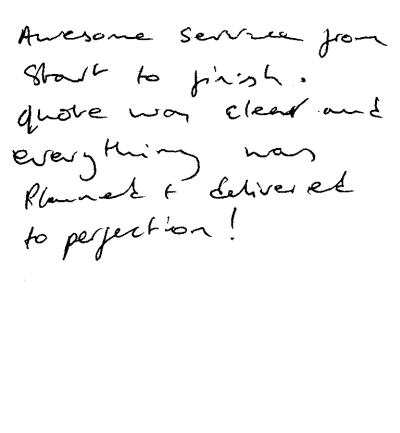 Awesome service from
start to finish.
quote was clear and
everything was
Planned + delivered
to perfection!